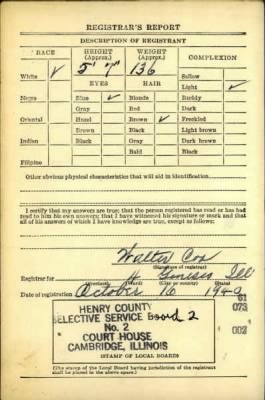 REGISTRAR'S REPORT
DESCRIPTION OF REGISTRANT
RACE HEIGHT (Approx.) WEIGHT (Approx.) COMPLEXION
5' 7" 136
White ✓ Sallow
EYES HAIR Light ✓
Negro Blue ✓ Blonde Ruddy
Gray Red Dark
Oriental Hazel Brown ✓ Freckled
Brown Black Light brown
Indian Black Gray Dark brown
Bald Black
Filipino
Other obvious physical characteristics that will aid in identification
I certify that my answers are true; that the person registered has read or has had
read to him his own answers; that I have witnessed his signature or mark and that
all of his answers of which I have knowledge are true, except as follows:
Walter Cox
(Signature of registrar)
Registrar for Geneseo Ill
(Precinct) (Ward) (City or county) (State)
Date of registration October 16 1940
61
HENRY COUNTY 073
SELECTIVE SERVICE Board 2
No. 2 002
COURT HOUSE
CAMBRIDGE, ILLINOIS
(STAMP OF LOCAL BOARD)
(The stamp of the Local Board having jurisdiction of the registrant
shall be placed in the above space.)